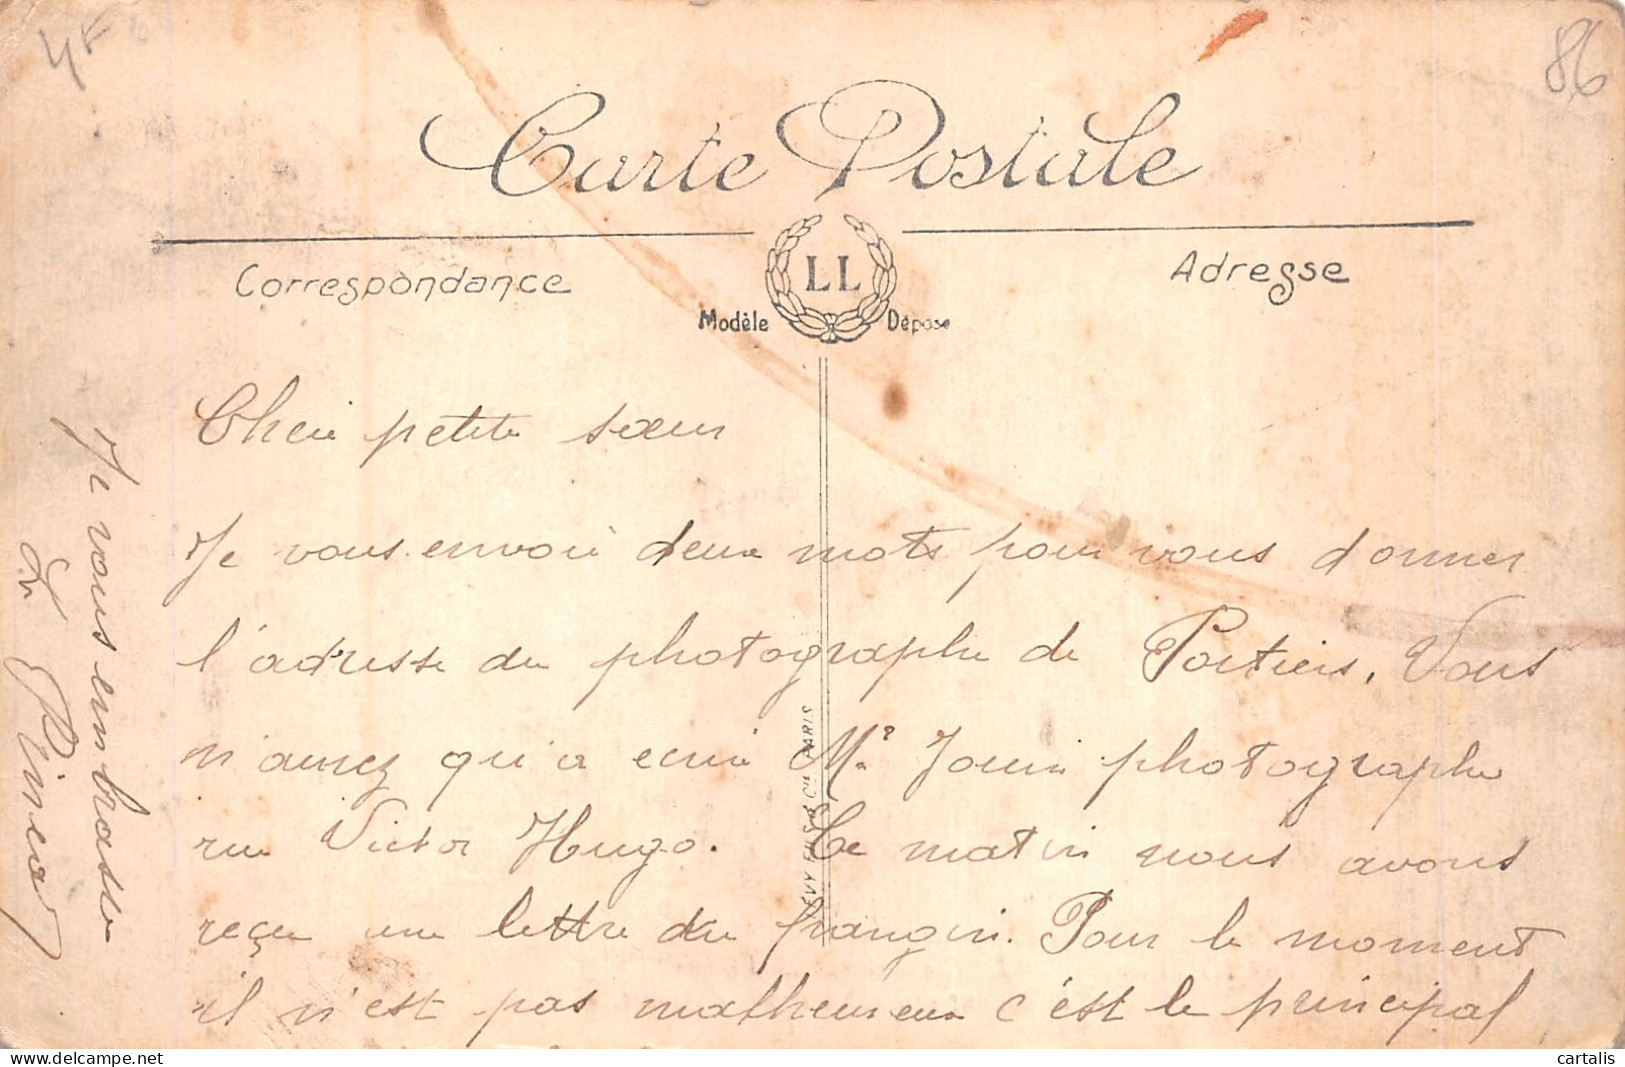 4F
86
Carte Postale
Correspondance
LL
Modèle Déposé
Adresse
Cheie petite sœur
Je vous envoie deux mots pour vous donner
l'adresse du photographe de Poitiers. Vous
n'aurez qu'a ecrire Mr Jouin photographe
rue Victor Hugo. Ce matin nous avons
reçu une lettre du frangin. Pour le moment
il n'est pas malheureux c'est le principal
Je vous embrasse
PARIS